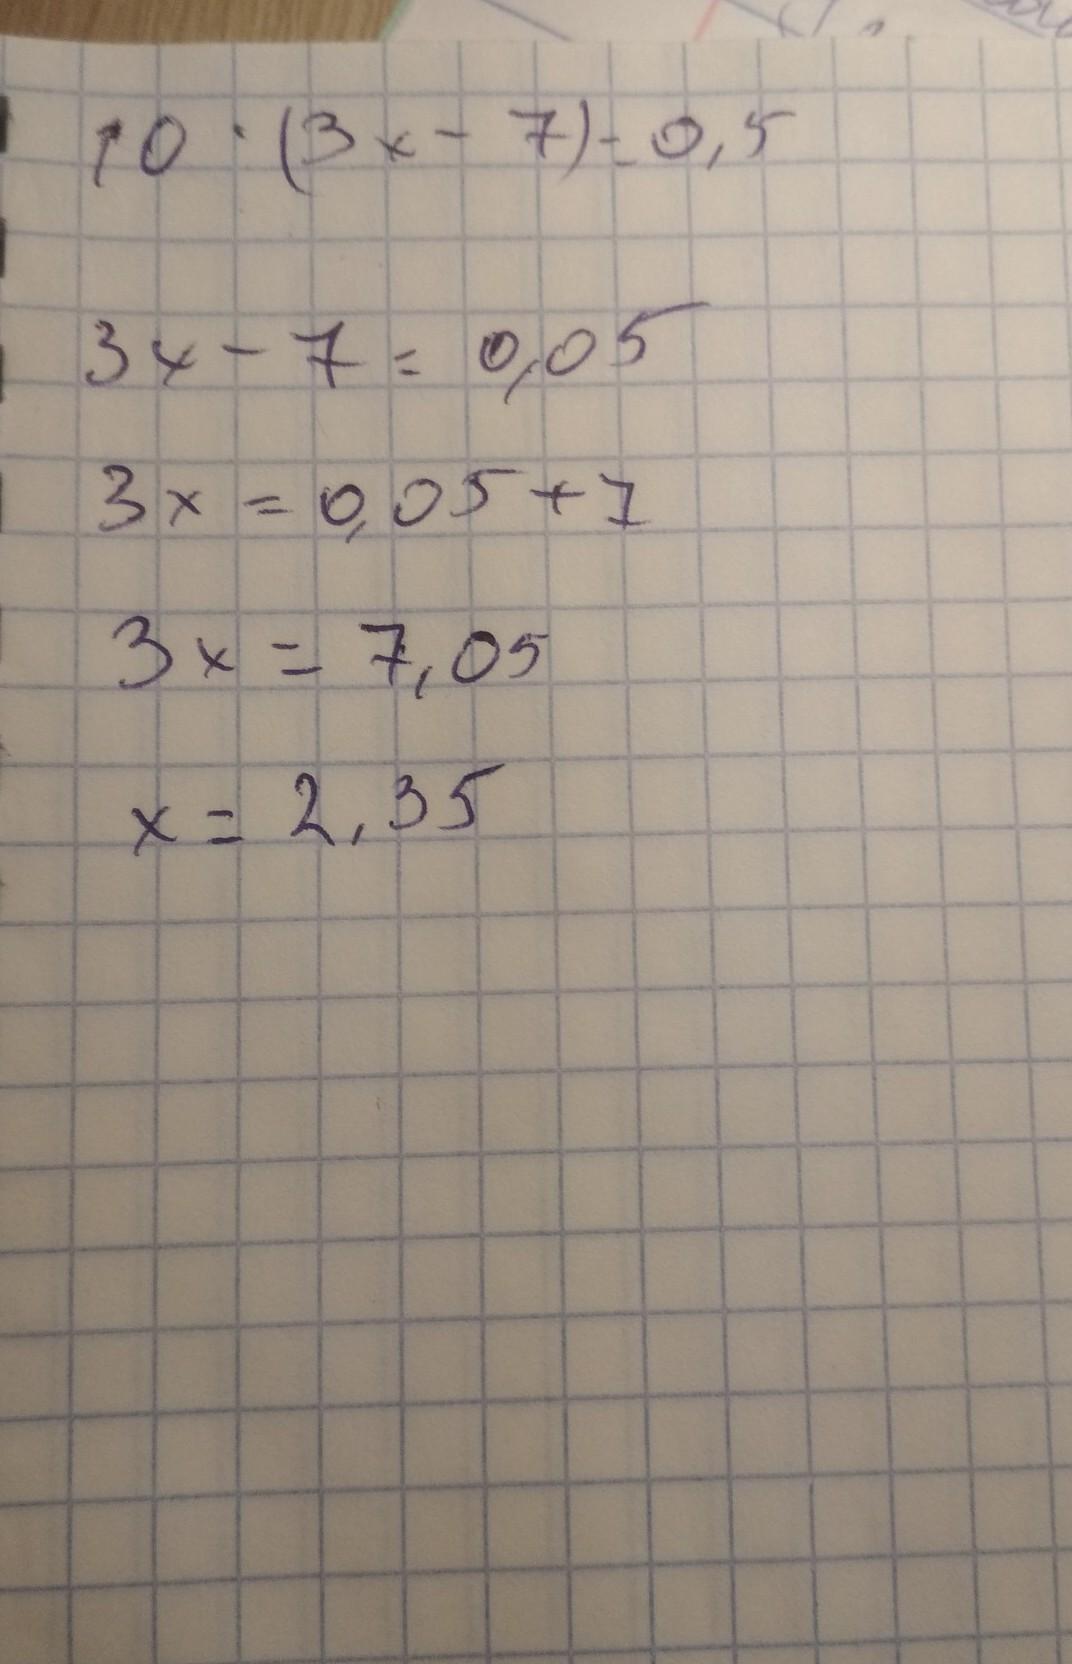 10 · (3x - 7) = 0,5
3x - 7 = 0,05
3x = 0,05 + 7
3x = 7,05
x = 2,35